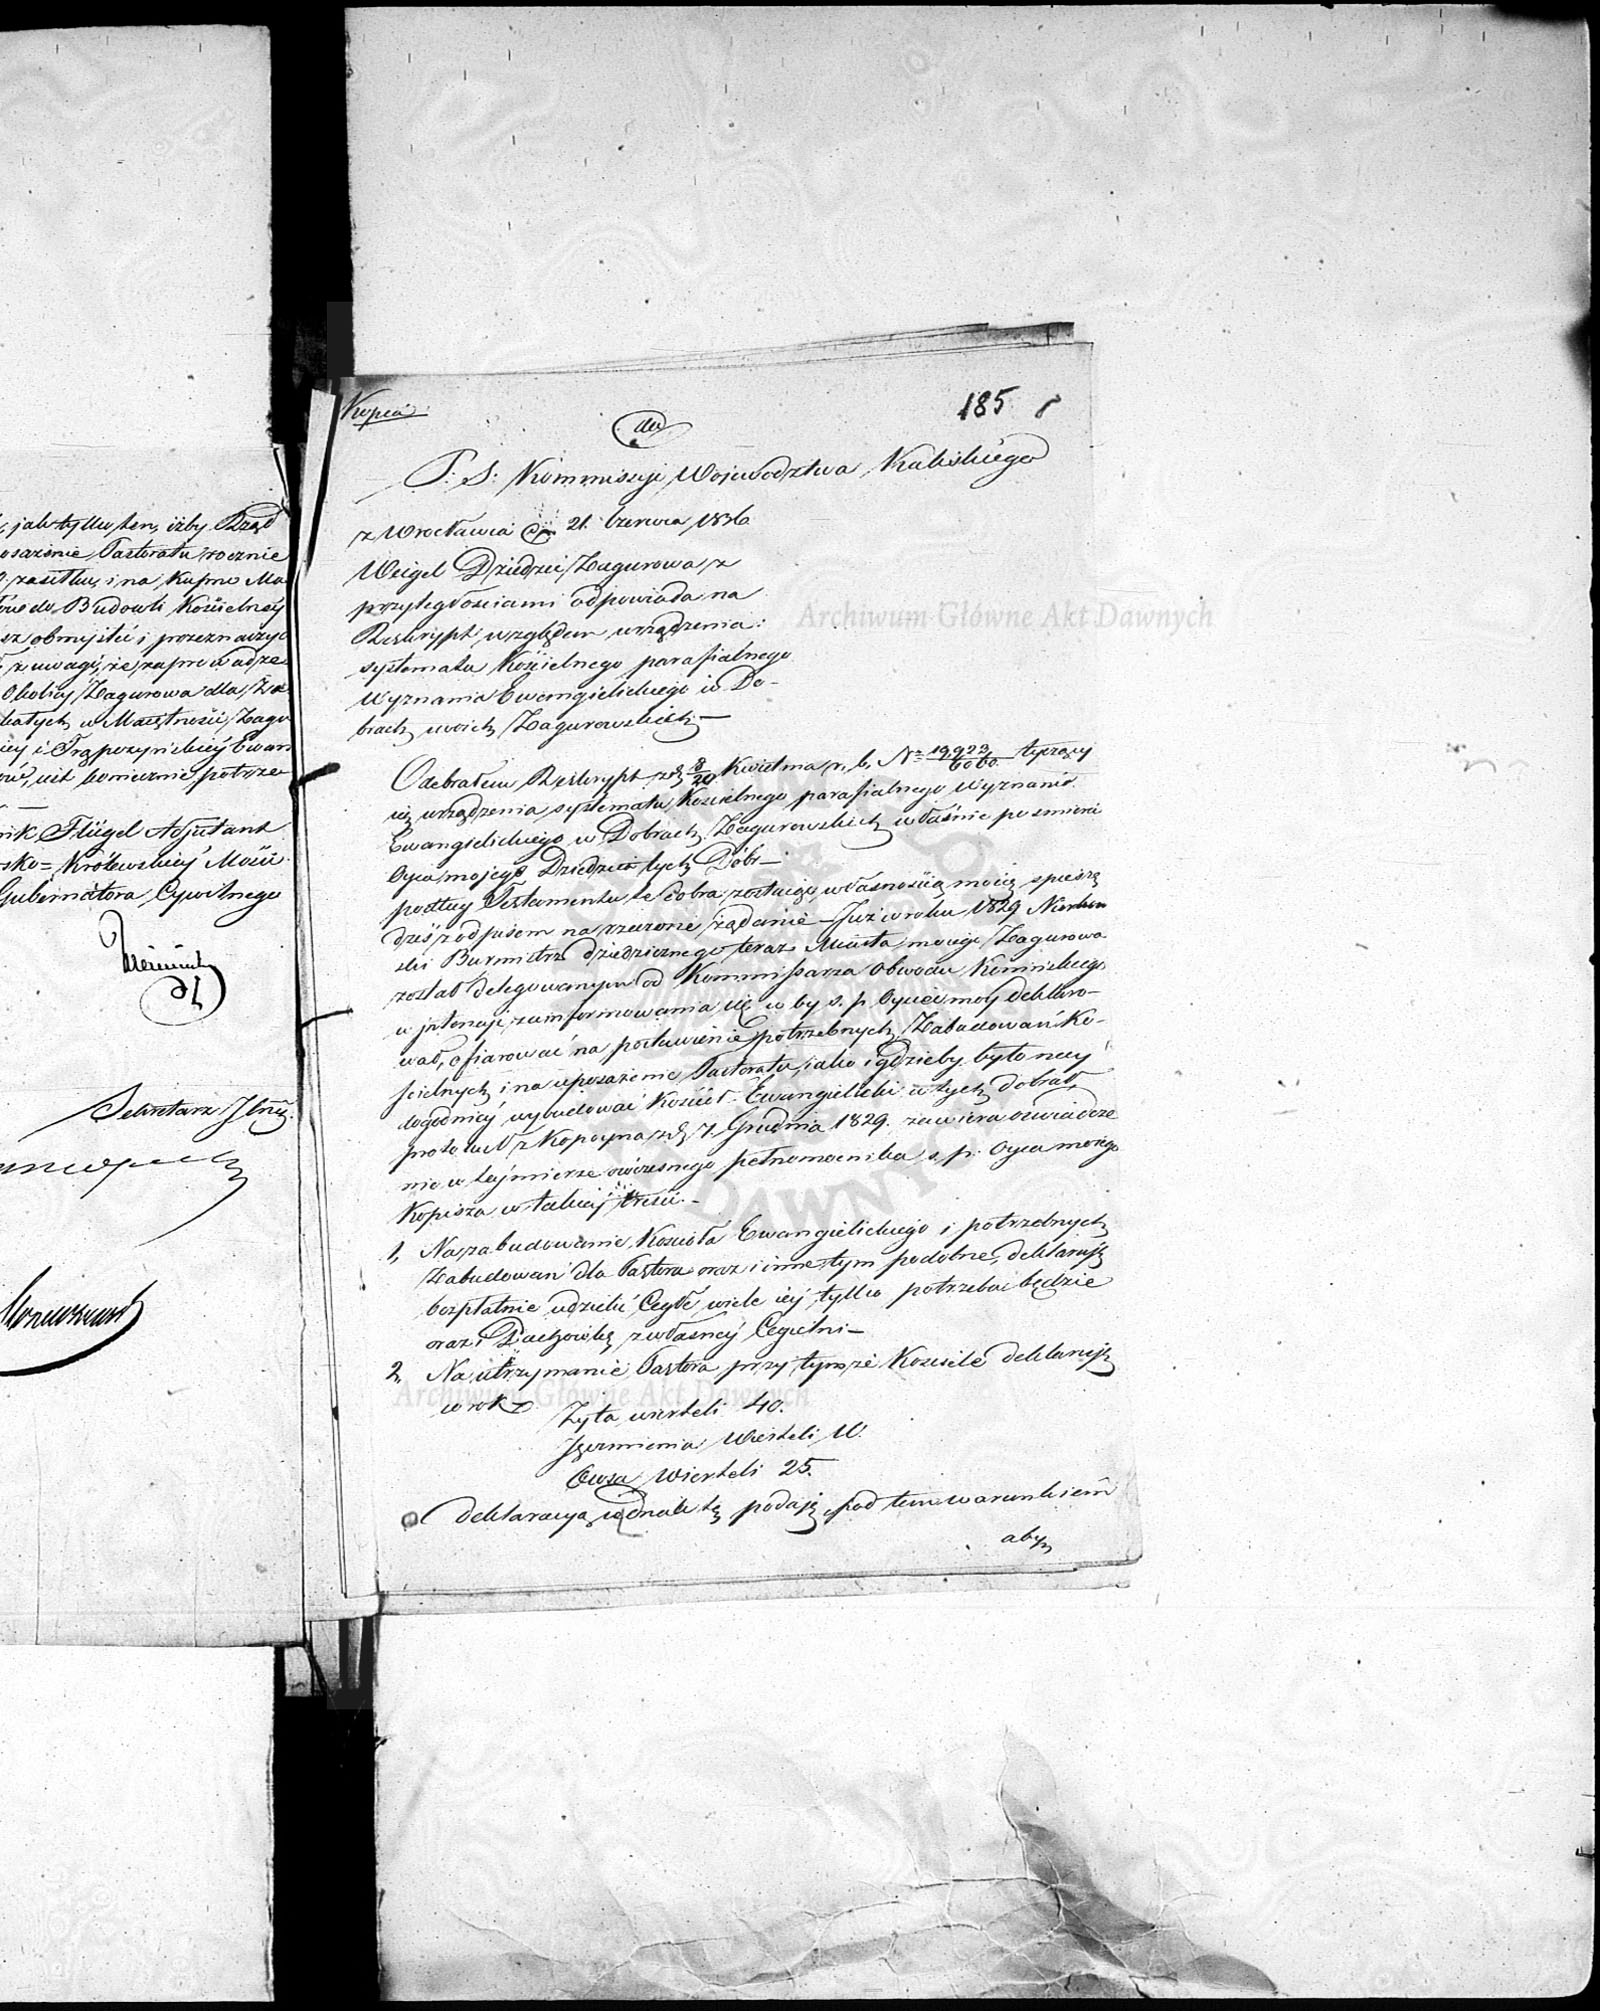 jak tylko ten, iżby Rząd
Pastoratu rocznie
i na kupno Ma
do Budowli Kościelnéy
obmyślić i przeznaczyć
z uwagi, że zaprowadze
Okolicy Zagurowa dla Za
w Maiętności Zagu
i Trąpczyńskiéy Ewan
koniecznie potrze
Flügel Adjutant
Królewskiéy Mości
Gubernatora Cywilnego
Sekretarz Jlny.
Kopia
185
do
P. S. Kommissyi Województwa Kaliskiego
z Wrocławia 21. Czerwca 1836
Weigel Dziedzic Zagurowa z
przyległościami odpowiada na
Reskrypt względem urządzenia
systematu Kościelnego parafialnego
Wyznania Ewangielickiego w Do-
brach swoich Zagurowskich —
Odebrałem Reskrypt z d. 8/20 Kwietnia r. b. Nr 19923/6060 tyczący
się urządzenia systematu Kościelnego parafialnego Wyznania
Ewangielickiego w Dobrach Zagurowskich właśnie po śmierci
Oyca mojego Dziedzica tych Dóbr —
podług Testamentu te Dobra zostały własnością moią spieszę
dziś z odpisem na rzeczone żądanie — Już w roku 1829
ski Burmistrz dziedzicznego teraz Miasta mojego Zagurowa
został delegowanym od Kommissarza Obwodu Konińskiego
w jntencyi zainformowania się co by ś. p. Oyciec móy deklaro-
wał, ofiarować na postawienie potrzebnych Zabudowań Ko-
ścielnych i na uposażenie Pastoratu, iako i gdzieby było nay
dogodniéy wybudować Kościół Ewangielicki w tych dobrach,
protokuł z Kopoyna z d. 7. Grudnia 1829. zawiera oświadcze
nie w téy mierze ówczesnego pełnomocnika ś. p. Oyca mojego
Kopisza w takiéy treści. —
1, Na zabudowanie Kościoła Ewangielickiego i potrzebnych
Zabudowań dla Pastora oraz i inne tym podobne, deklaruję
bezpłatnie udzielić Cegłę wiele iéy tylko potrzeba będzie
oraz i Dachówkę z własnéy Cegielni —
2, Na utrzymanie Pastora przy tymże Kościele deklaruję
w rok
Żyta wierteli 40.
Jęczmienia Wierteli 10.
Owsa Wierteli 25.
deklaracyą jednak tę podaję pod tem warunkiem
aby
Archiwum Główne Akt Dawnych
Archiwum Główne Akt Dawnych